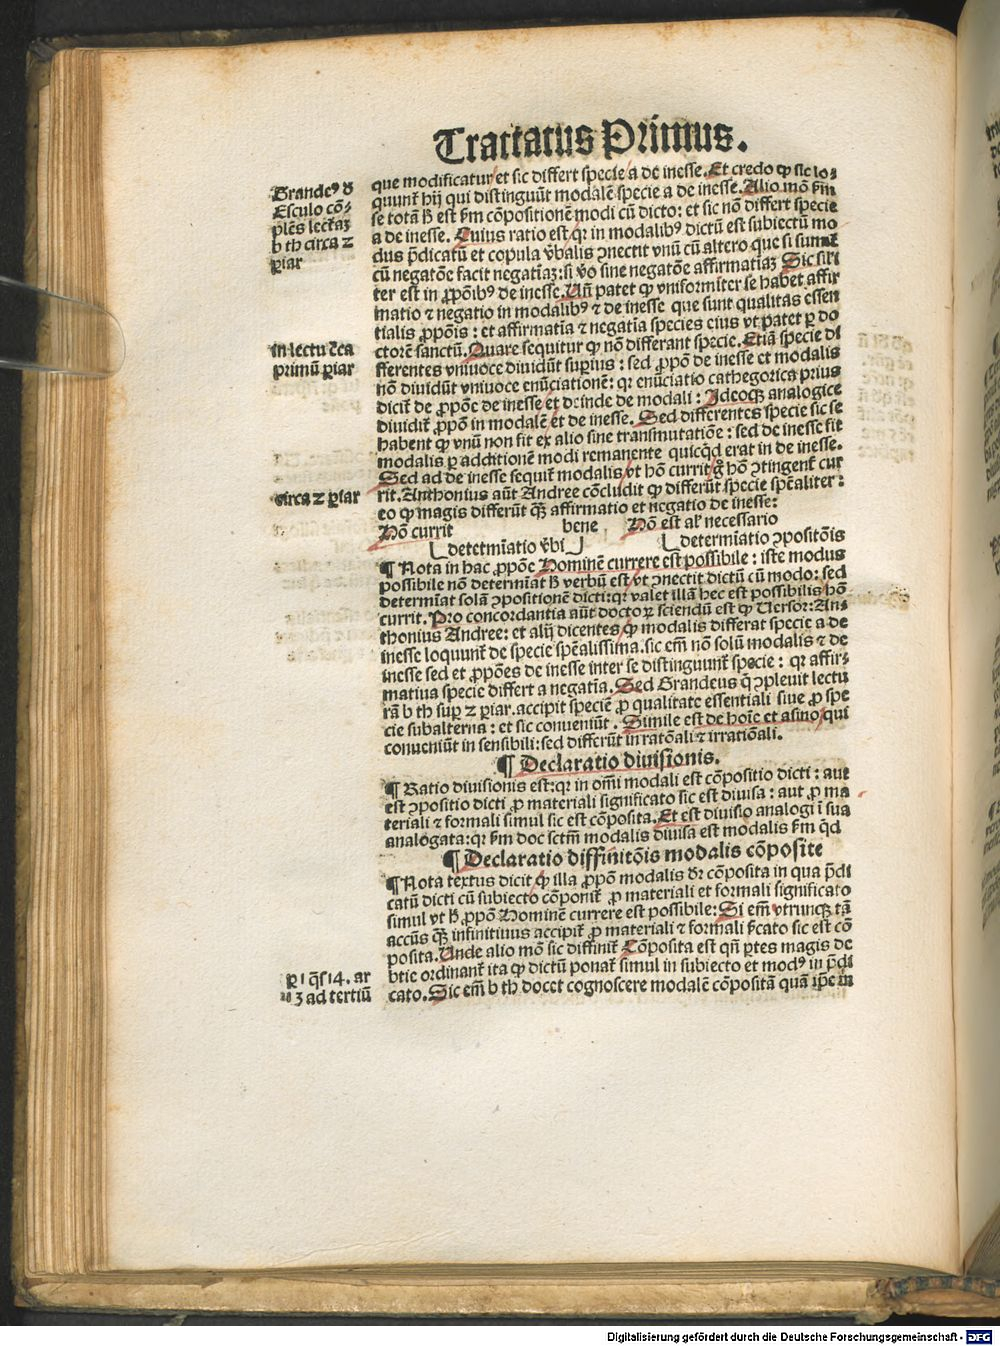 Tractatus Primus.
que modificatur et sic differt specie a de inesse. Et credo ꝙ sic lo⸗
quunt᷑ hij qui distinguūt modalē specie a de inesse. Alio mō ẜm
se totā ꝓut est ẜm cōpositionē modi cū dicto: et sic nō differt specie
a de inesse. Cuius ratio est qꝛ in modalibꝰ dictū est subiectū mo
dus p̄dicatū et copula v̄balis ꝯnectit vnū cū altero que si sumat᷑
cū negatōe facit negatiaꝫ: si v̄o sine negatōe affirmatiaꝫ Sic sili
ter est in ꝓpōibꝰ de inesse. Uñ patet ꝙ vniformiter se habet affir
matio ⁊ negatio in modalibꝰ ⁊ de inesse que sunt qualitas essen
tialis ꝓpōis: et affirmatīa ⁊ negatīa species eius vt patet ꝑ do
ctorē sanctū. Quare sequitur ꝙ nō differant specie. Etiā specie di
fferentes vniuoce diuidūt suꝑius: sed ꝓpō de inesse et modalis
nō diuidūt vniuoce enūciationē: qꝛ enūciatio cathegorica prius
dicit᷑ de ꝓpōe de inesse et deinde de modali: Ideoqꝫ analogice
diuidit᷑ ꝓpō in modalē et de inesse. Sed differentes specie sic se
habent ꝙ vnū non fit ex alio sine transmutatiōe: sed de inesse fit
modalis ꝑ additionē modi remanente quicq̄d erat in de inesse.
Sed ad de inesse sequit᷑ modalis vt hō currit g̊ hō ꝯtingent᷑ cur
rit. Anthonius aūt Andree cōcludit ꝙ differūt specie spēaliter:
eo ꝙ magis differūt qꝫ affirmatio et negatio de inesse:
Hō currit bene Hō est al᷑ necessario
detetmīatio v̄bi determīatio ꝯpositōis
¶ Nota in hac ꝓpōe Hominē currere est possibile: iste modus
possibile nō determīat ẜ verbū est vt ꝯnectit dictū cū modo: sed
determīat solā ꝯpositionē dicti: qꝛ valet illā hec est possibilis hō
currit. Pro concordantia aūt doctoꝝ sciendū est ꝙ Uersor: An⸗
thonius Andree: et alij dicentes ꝙ modalis differat specie a de
inesse loquunt᷑ de specie spēalissima. sic em̄ nō solū modalis ⁊ de
inesse sed et ꝓpōes de inesse inter se distinguunt᷑ specie: qꝛ affir⸗
matiua specie differt a negatīa. Sed Grandeus q̇ ꝯpleuit lectu
rā b th suꝑ 2 ꝑiar. accipit speciē ꝓ qualitate essentiali siue ꝓ spe
cie subalterna: et sic conueniūt. Simile est de hoīe et asino qui
conueniūt in sensibili: sed differūt in ratōali ⁊ irratiōali.
¶ Declaratio diuisionis.
¶ Ratio diuisionis est: qꝛ in omī modali est cōpositio dicti: aut
est ꝯpositio dicti ꝓ materiali significato sic est diuisa: aut ꝓ ma
teriali ⁊ formali simul sic est cōposita. Et est diuisio analogi ī sua
analogata: qꝛ ẜm doc sctm̄ modalis diuisa est modalis ẜm qd̄
¶ Declaratio diffinitōis modalis cōposite
¶ Nota textus dicit ꝙ illa ꝓpō modalis dꝛ cōposita in qua p̄di
catū dicti cū subiecto cōponit᷑ ꝓ materiali et formali significato
simul vt ẜ ꝓpō Hominē currere est possibile: Si em̄ vtrunqꝫ tā
accūs qꝫ infinitiuus accipit᷑ ꝓ materiali ⁊ formali ẜcato sic est cō
posita. Unde alio mō sic diffinit᷑ Cōposita est qn̄ ꝑtes magis de
bite ordinant᷑ ita ꝙ dictū ponat᷑ simul in subiecto et modꝰ in p̄di
cato. Sic em̄ b th docet cognoscere modalē cōpositā quā ip̄e in
Grandeꝰ d̄
Esculo cō⸗
plēs lect᷑aꝫ
b th circa 2
ꝑiar
in lectu c̄ca
primū ꝑiar
circa 2 ꝑiar
ꝑ 1 q̄s 14. ar
3 ad tertiū
Digitalisierung gefördert durch die Deutsche Forschungsgemeinschaft - DFG